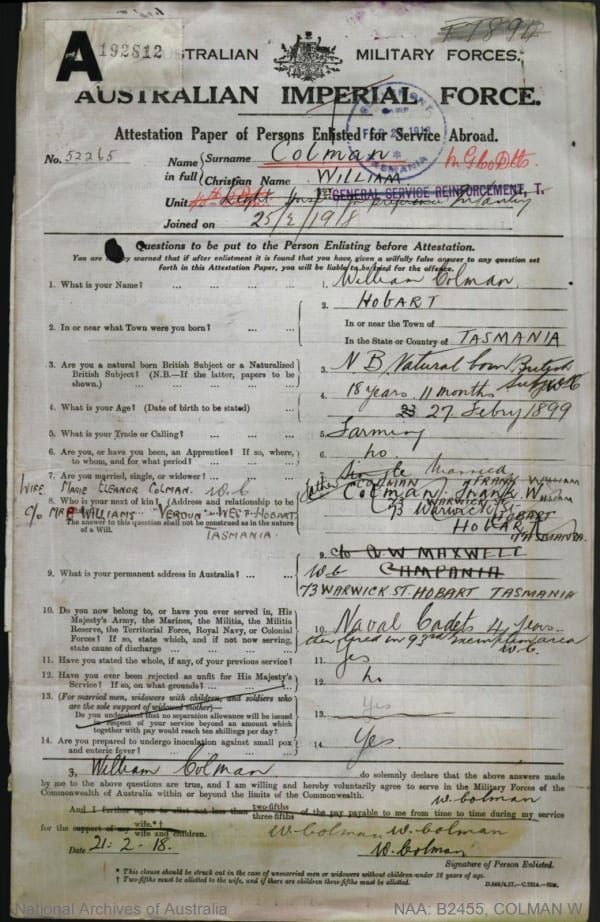 F7894
A 192812
AUSTRALIAN MILITARY FORCES.
AUSTRALIAN IMPERIAL FORCE.
Attestation Paper of Persons Enlisted for Service Abroad.
No. 52265
Name in full { Surname Colman
Christian Name WILLIAM
M G Co Dtts.
Unit GENERAL SERVICE REINFORCEMENT, T.
Infantry
Joined on 25/2/1918
FEB 1918
TASMANIA
Questions to be put to the Person Enlisting before Attestation.
You are warned that if after enlistment it is found that you have, given a wilfully false answer to any question set
forth in this Attestation Paper, you will be liable to be tried for the offence.
1. What is your Name? ... ... ... 1. William Colman.
2. In or near what Town were you born? ... ... 2. HOBART
In or near the Town of
In the State or Country of TASMANIA
3. Are you a natural born British Subject or a Naturalized
British Subject? (N.B.—If the latter, papers to be
shown.) ... ... ... ... 3. N B Natural born British Subject
4. What is your Age? (Date of birth to be stated) ... 4. 18 years 11 months
27 Febry 1899
5. What is your Trade or Calling? ... ... ... 5. Farming
6. Are you, or have you been, an Apprentice? If so, where,
to whom, and for what period? ... ... ... 6. no
7. Are you married, single, or widower? ... ... 7. Single Married
WIFE MARIE ELEANOR COLMAN. W.C
8. Who is your next of kin? (Address and relationship to be
C/o MRS WILLIAMS "VERDUN" WEST HOBART
TASMANIA.
The answer to this question shall not be construed as in the nature
of a Will.
father COLMAN FRANK William
Colman Frank W
73 WARWICK ST
73 Warwick St
HOBART
Hobart
TASMANIA.
9. What is your permanent address in Australia? ... ... 9. c/o G W MAXWELL
W.C CAMPANIA
73 WARWICK ST. HOBART TASMANIA
10. Do you now belong to, or have you ever served in, His
Majesty's Army, the Marines, the Militia, the Militia
Reserve, the Territorial Force, Royal Navy, or Colonial
Forces? If so, state which, and if not now serving,
state cause of discharge ... ... 10. Naval Cadets 4 years
then lived in 93rd Exemption area
W.C.
11. Have you stated the whole, if any, of your previous service? 11. yes
12. Have you ever been rejected as unfit for His Majesty's
Service? If so, on what grounds? ... ... 12. no
13. (For married men, widowers with children, and soldiers who
are the sole support of widowed mother—
Do you understand that no separation allowance will be issued
in respect of your service beyond an amount which
together with pay would reach ten shillings per day? 13. Yes
14. Are you prepared to undergo inoculation against small pox
and enteric fever? ... ... ... ... 14. Yes.
I, William Colman do solemnly declare that the above answers made
by me to the above questions are true, and I am willing and hereby voluntarily agree to serve in the Military Forces of the
Commonwealth of Australia within or beyond the limits of the Commonwealth.
W. Colman
And I further allot not less than two-fifths
three-fifths of the pay payable to me from time to time during my service
for the support of my wife.*†
wife and children. W. Colman W. Colman
Date 21. 2. 18. W. Colman
Signature of Person Enlisted.
* This clause should be struck out in the case of unmarried men or widowers without children under 16 years of age.
† Two-fifths must be allotted to the wife, and if there are children three-fifths must be allotted.
National Archives of Australia
NAA: B2455, COLMAN W